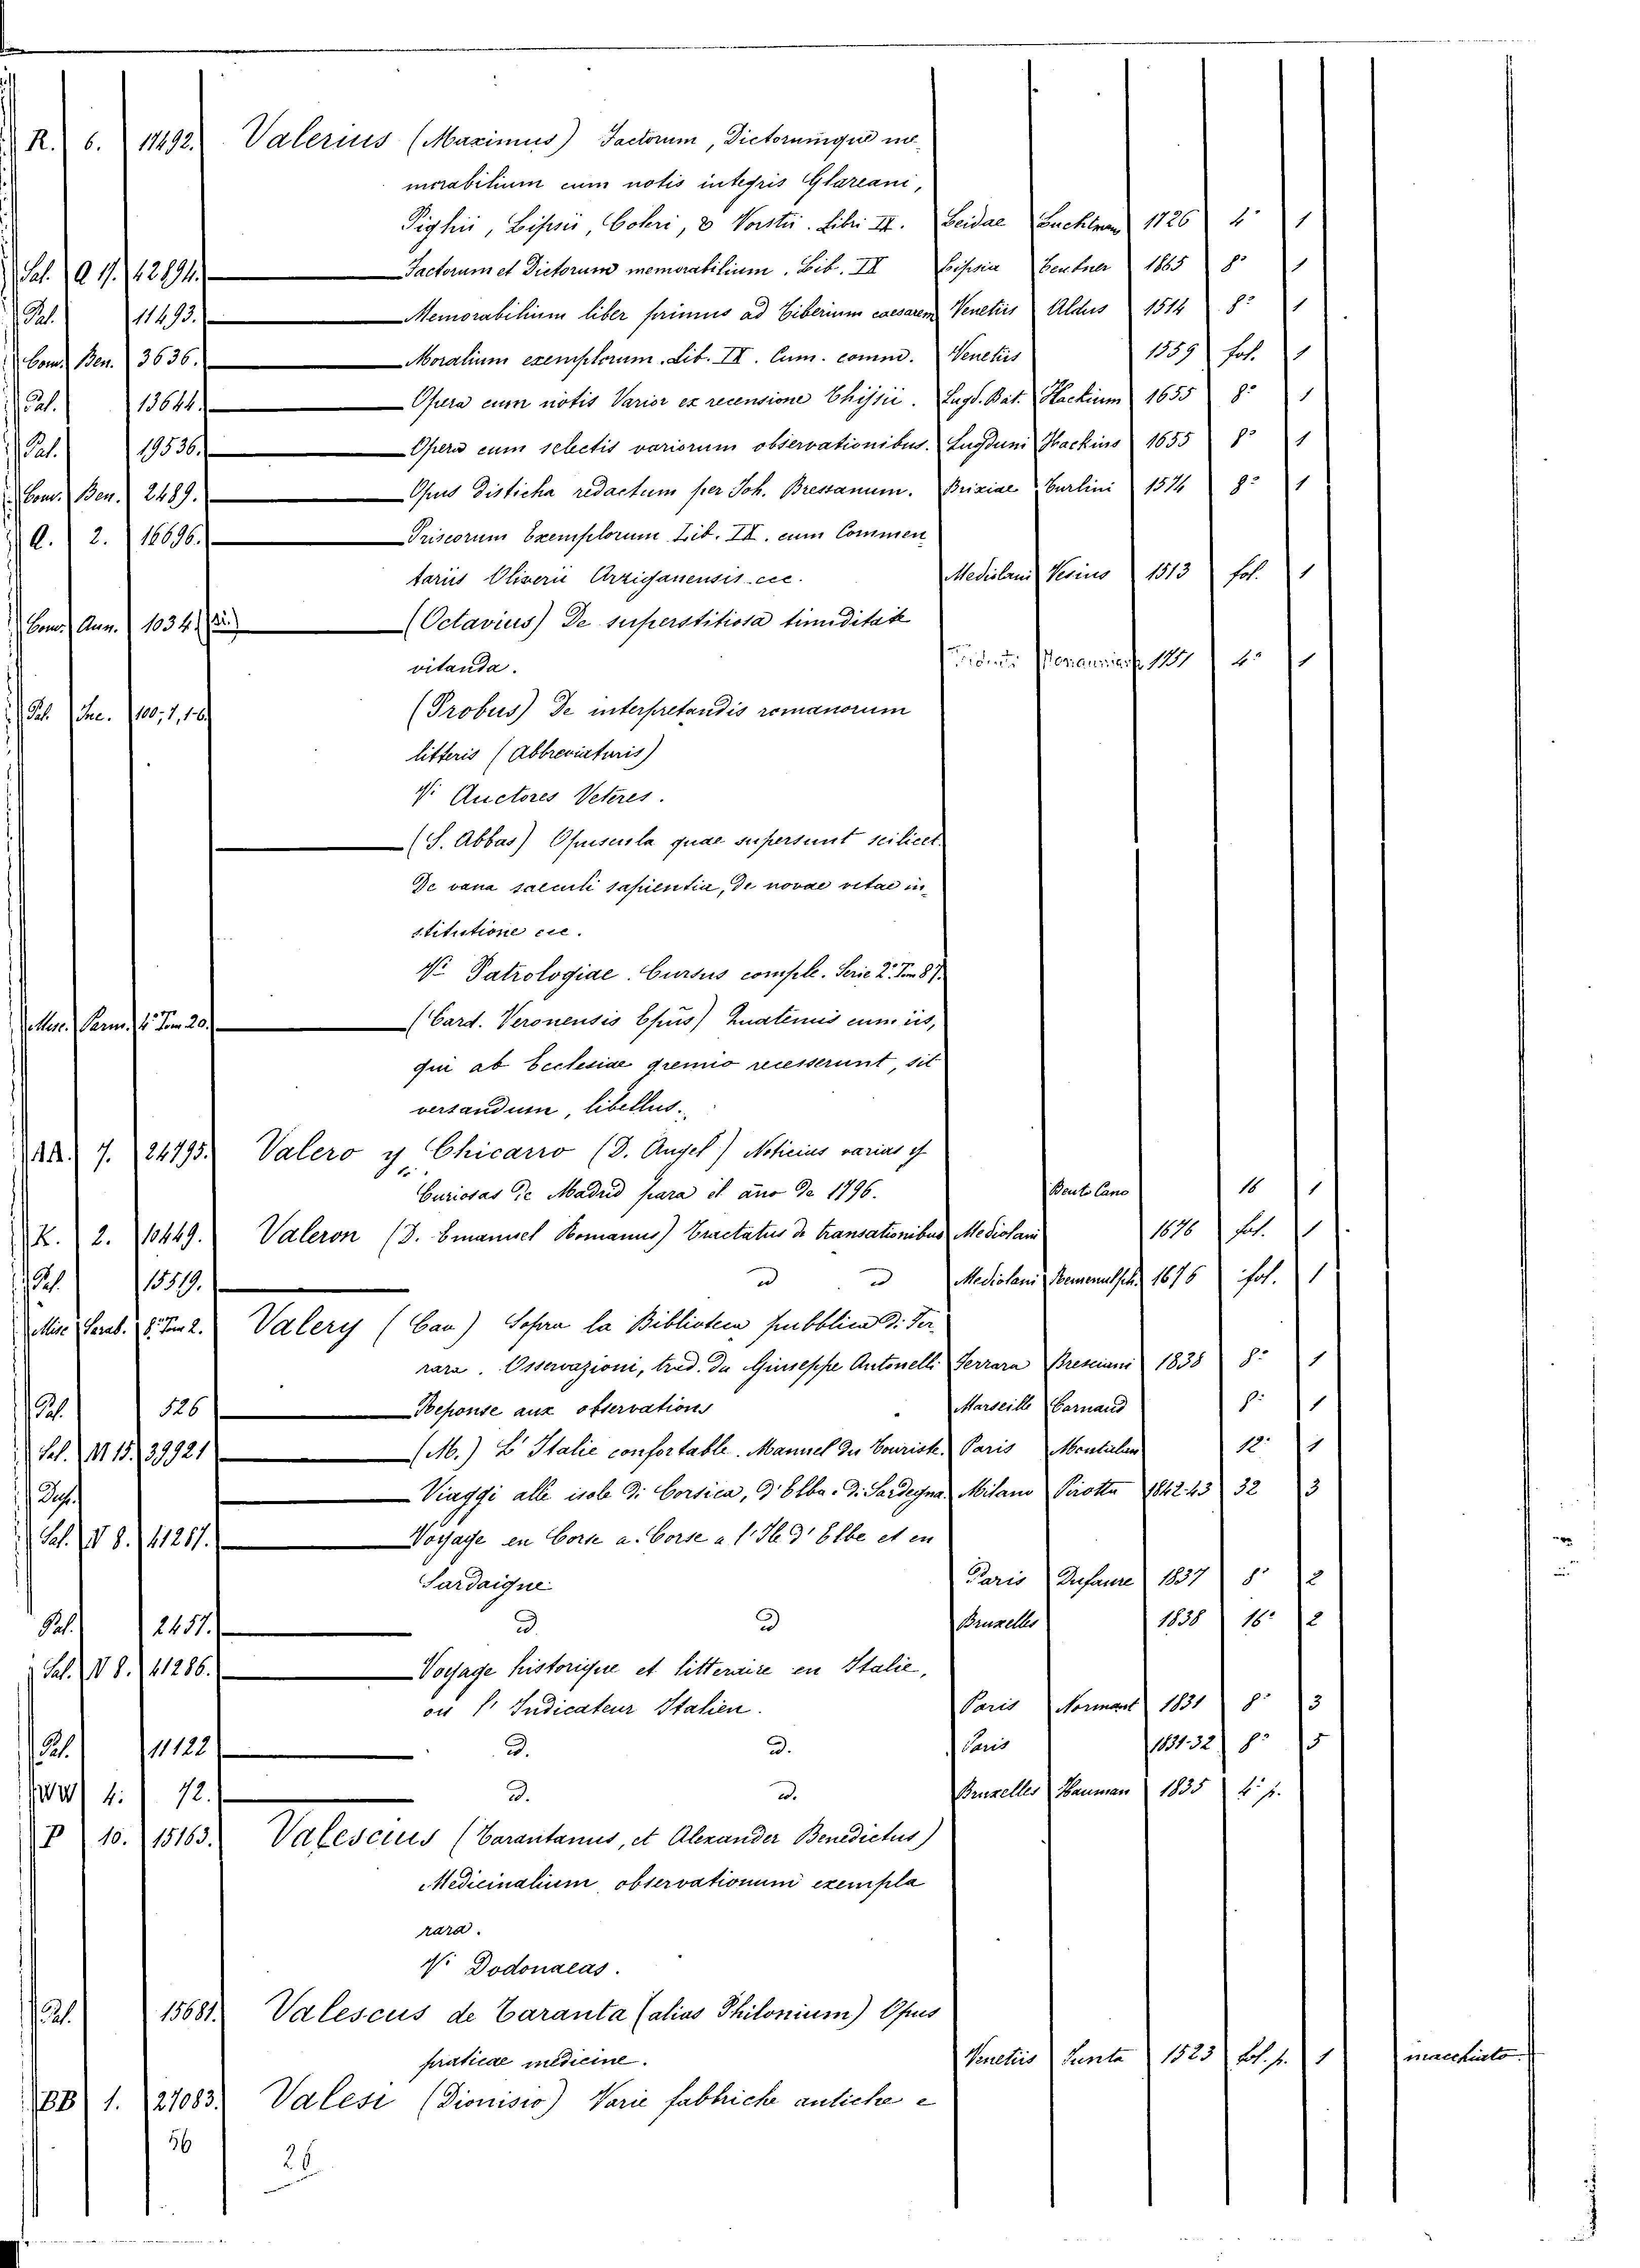 R. 6. 11492. Valerius (Maximus) Factorum, Dictorumque me-
morabilium cum notis integris Glareani,
Pighii, Lipsii, Coleri, & Vorstii. Libri IX. Leidae Luchtman 1726 4° 1
Sal. Q 17. 42894. Factorum et Dictorum memorabilium. Lib. IX Lipsiae Teubner 1865 8° 1
Pal. 11493. Memorabilium liber primus ad Tiberium caesarem Venetiis Aldus 1514 8° 1
Com. Ben. 3636. Moralium exemplorum. Lib. IX. Cum. comm. Venetiis 1559 fol. 1
Pal. 13644. Opera cum notis Varior ex recensione Thisii. Lugd. Bat. Hackium 1655 8° 1
Pal. 19536. Opera cum selectis variorum observationibus. Lugduni Hackius 1655 8° 1
Com. Ben. 2489. Opus Disticha redactum per Joh. Bressanum. Brixiae Turlini 1574 8° 1
Q. 2. 16696. Priscorum Exemplorum Lib. IX. cum Commen-
tariis Oliverii Arzignanensis ecc. Mediolani Vesius 1513 fol. 1
Com. Ann. 1034 (Octavius) De superstitiosa timiditate
vitanda. 1751 4° 1
Pal. Inc. 100,7,1-6 (Probus) De interpretandis romanorum
litteris (Abbreviaturis)
V. Auctores Veteres.
(S. Abbas) Opuscula quae supersunt scilicet.
De vana saeculi sapientia, De novae vitae in-
stitutione ecc.
V. Patrologiae. Cursus comple. Serie 2. Tom 87.
Misc. Parm. 4° Tom 20. (Card. Veronensis Epus) Quatenus cum iis,
qui ab Ecclesiae gremio recesserunt, sit
versandum, libellus.
AA. 7. 24795. Valero y Chicarro (D. Angel) Noticias varias y
Curiosas de Madrid para el ano de 1796. Benito Cano 16 1
K. 2. 10449. Valeron (D. Emanuel Romanus) Tractatus de transationibus Mediolani 1676 fol. 1
Pal. 15519. id id Mediolani 1676 fol. 1
Misc Parab. 8° Tom 2. Valery (Cav.) Sopra la Biblioteca pubblica di Fer-
rara. Osservazioni, trad. da Giuseppe Antonelli Ferrara Bresciani 1838 8° 1
Pal. 526 Reponse aux observations Marseille Carnaud 8° 1
Sal. M 15. 39921 (M.) L'Italie confortable. Manuel du Tourist. Paris 12° 1
Dup. Viaggi alle isole di Corsica, d'Elba. di Sardegna Milano Pirotta 1842.43 32 3
Sal. N 8. 41287. Voyage en Corse a. Corse a l'Ile d'Elbe et en
Sardaigne Paris Dufaure 1837 8° 2
Pal. 2457. id id Bruxelles 1838 16° 2
Sal. N 8. 41286. Voyage historique et litteraire en Italie,
ou l'Indicateur Italien. Paris Normant 1831 8° 3
Pal. 11122 id. id. Paris 1831-32 8° 5
WW 4. 72. id. id. Bruxelles Hauman 1835 4° p.
P 10. 15163. Valescius (Tarantanus, et Alexander Benedictus)
Medicinalium observationum exempla
rara.
V. Dodonaeas.
Pal. 15681. Valescus de Taranta (alias Philonium) Opus
praticae medicine. Venetiis Junta 1523 fol. p. 1 macchiato.
BB 1. 27083. Valesi (Dionisio) Varie fabbriche antiche e
56 26